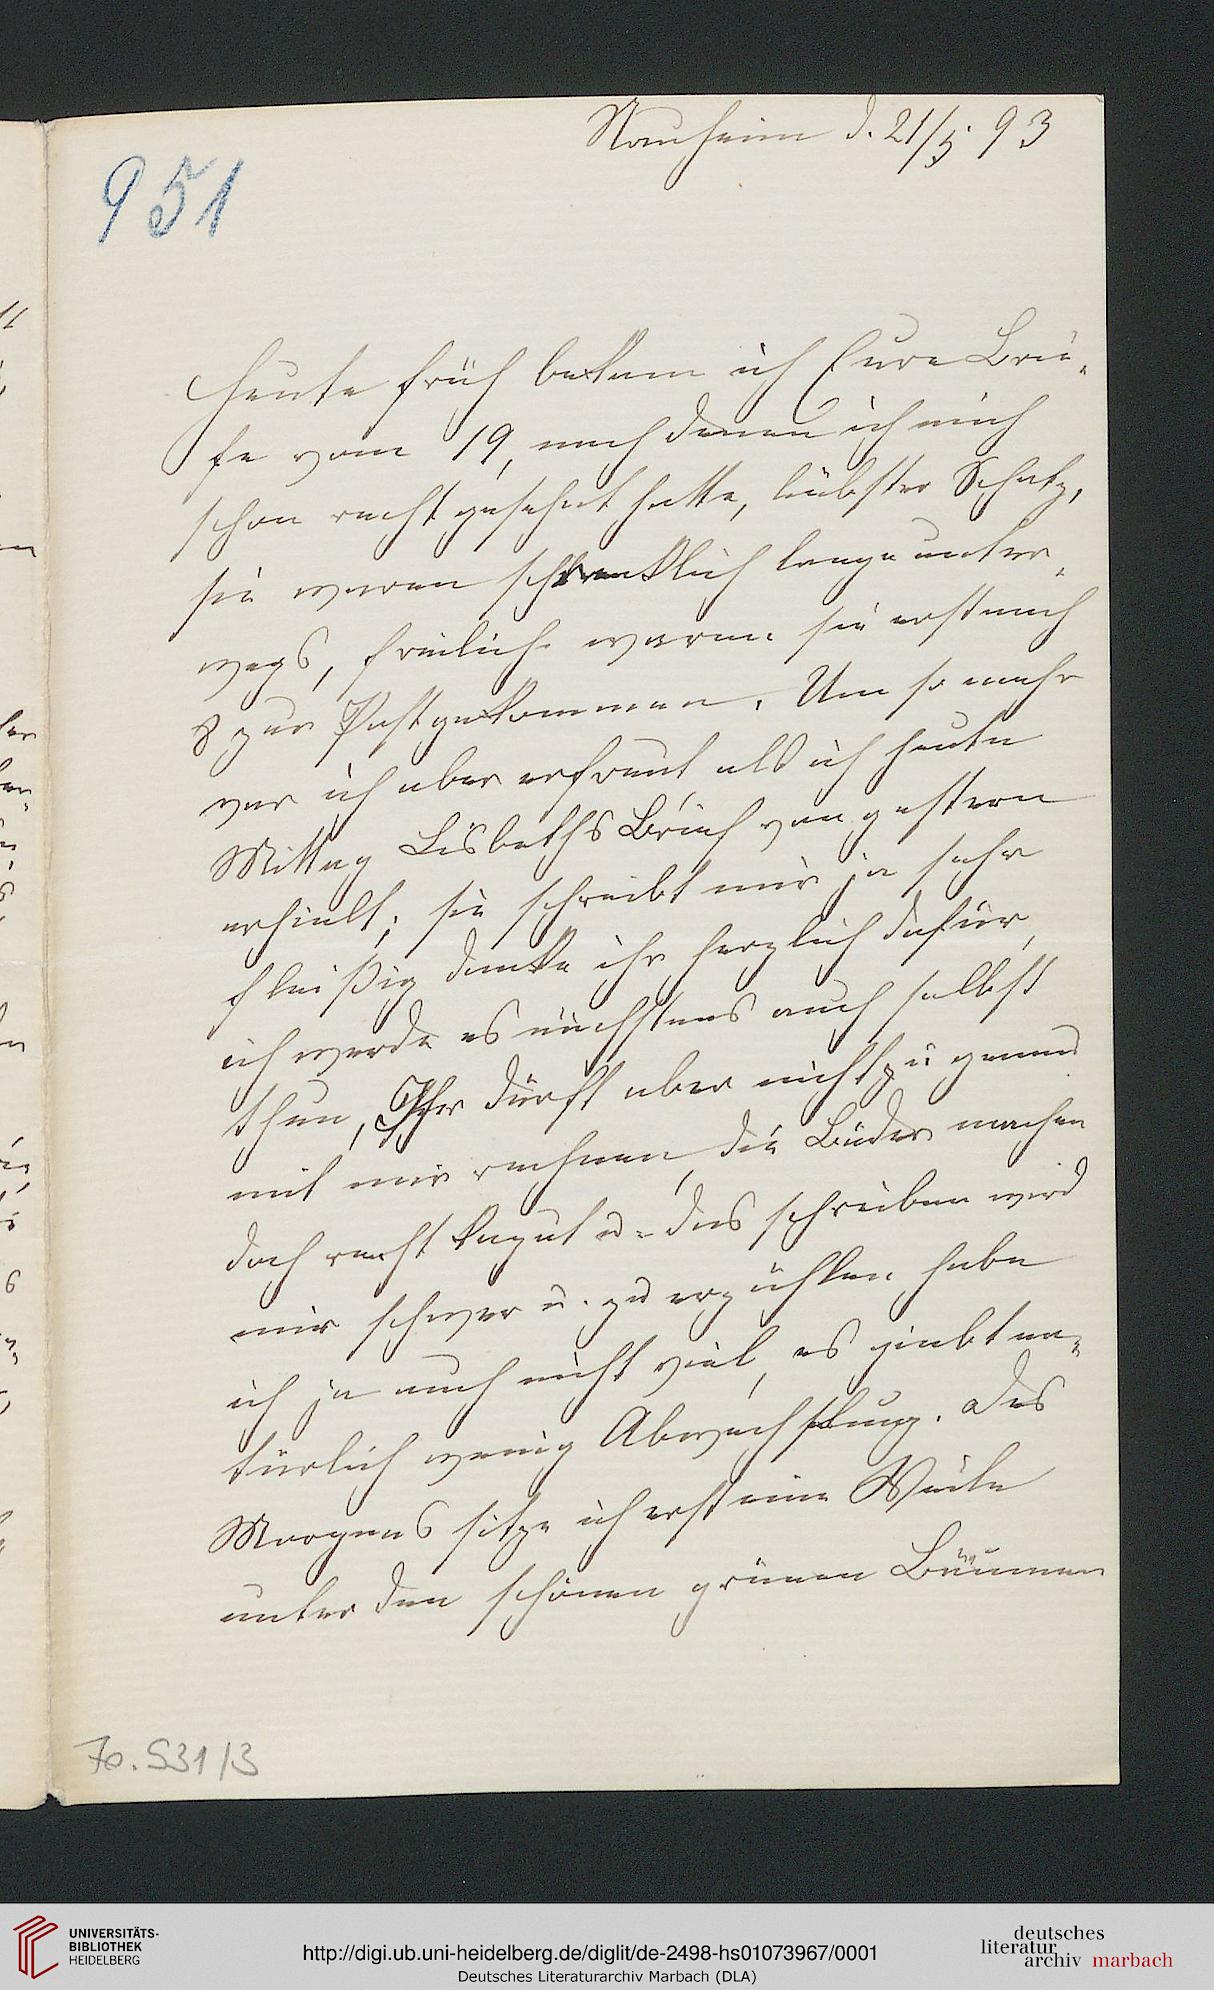 Nauheim d. 21/5. 93
951
Heute früh bekam ich Eure Brie-
fe vom 19, nach denen ich mich
schon recht gesehnt hatte, liebster Schatz,
sie waren schrecklich lange unter-
wegs, freilich waren sie erst nach
8 zur Post gekommen. Um so mehr
war ich aber erfreut, als ich heute
Mittag Lisbeths Brief von gestern
erhielt; sie schreibt mir ja sehr
fleißig danke ihr herzlich dafür,
ich werde es nächstens auch selbst
thun, Ihr dürft aber nicht zu genau
mit mir rechnen, die Bäder machen
doch recht kaput u. das schreiben wird
mir schwer u. zu erzählen habe
ich ja auch nicht viel, es giebt na-
türlich wenig Abwechslung. Des
Morgens sitze ich erst eine Weile
unter den schönen grünen Bäumen
70.531/3
UNIVERSITÄTS-
BIBLIOTHEK
HEIDELBERG
http://digi.ub.uni-heidelberg.de/diglit/de-2498-hs01073967/0001
Deutsches Literaturarchiv Marbach (DLA)
deutsches
literatur
archiv marbach